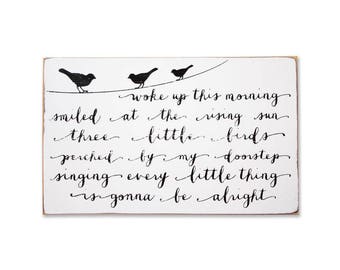 woke up this morning
smiled at the rising sun
three little birds
perched by my doorstep
singing every little thing
is gonna be alright